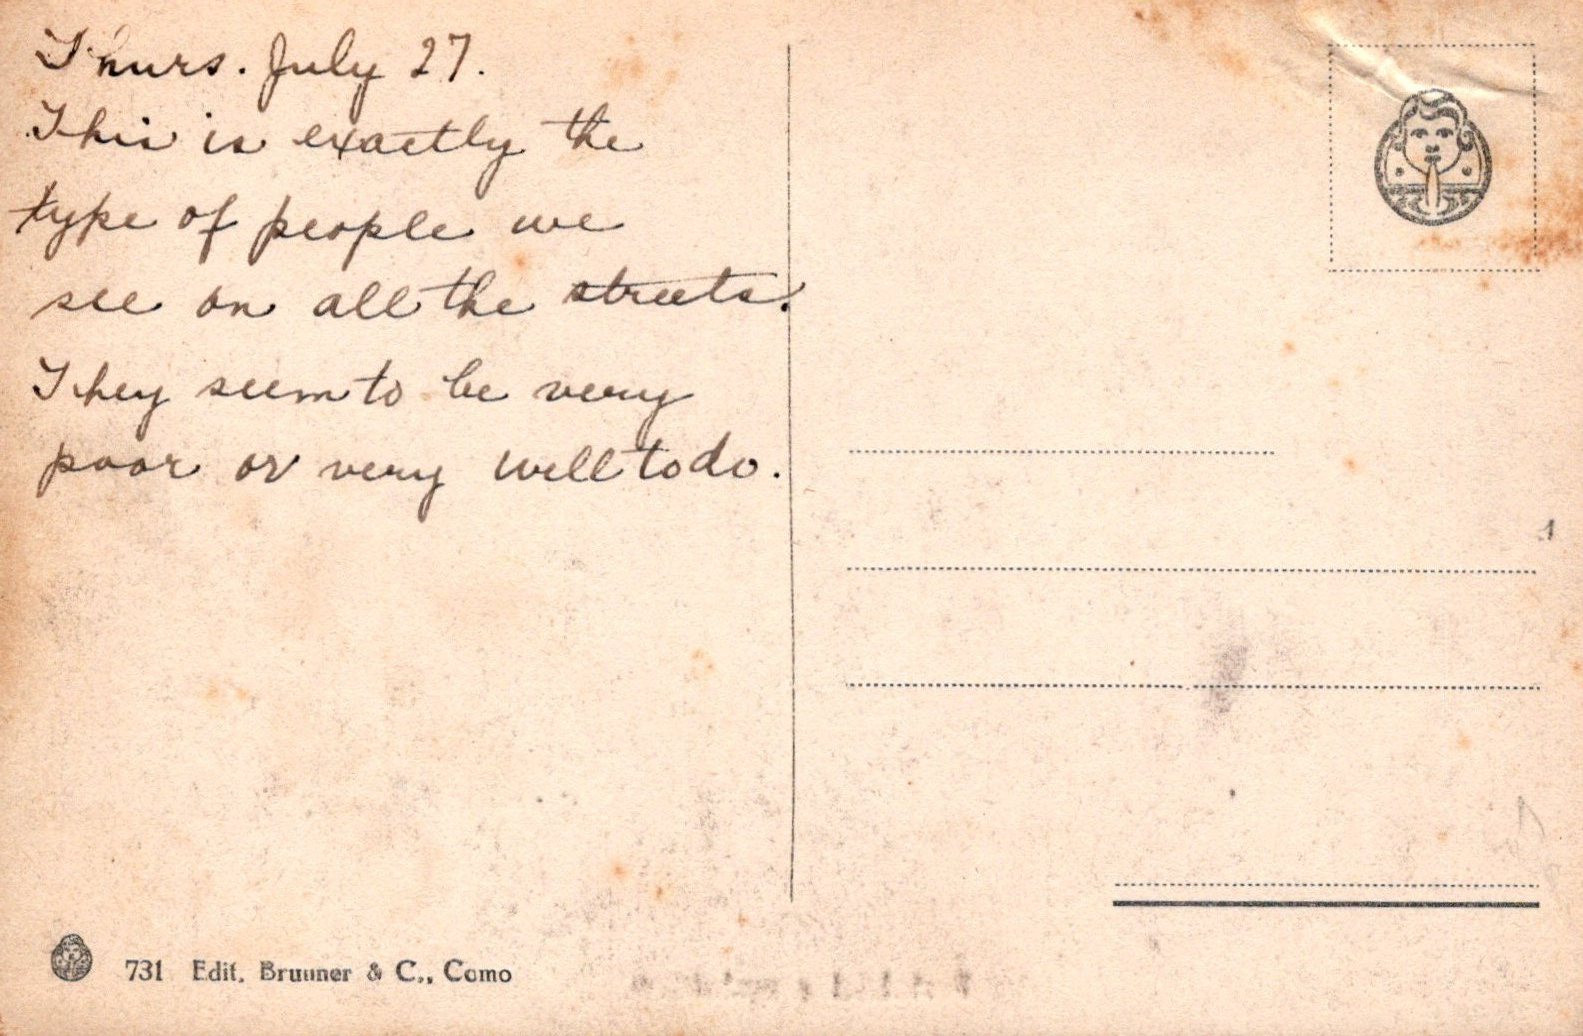 Thurs. July 27.
This is exactly the
type of people we
see on all the streets.
They seem to be very
poor or very well to do.
731 Edit. Brunner & C., Como